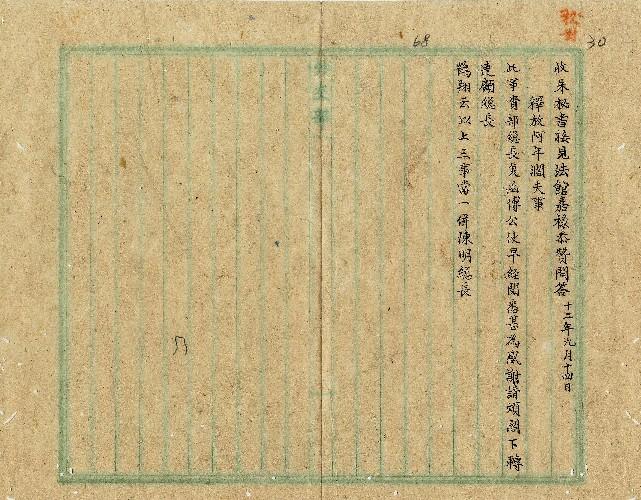 30
68
收朱祕書接見法館嘉祿恭贊問答 十二年九月十四日
釋放阿年濶夫事
此事貴部總長覆函傅公使早經閱悉甚為感謝請煩閣下轉
達顧總長
鶴翔云以上三事當一併陳明總長